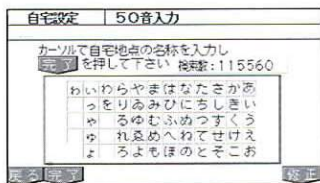 自宅設定 50音入力
カーソルで自宅地点の名称を入力し
完了を押して下さい 検索数:115560
ゎぃわらやまはなたさかあ
っをりゐみひにちしきい
ゃ るゆむふぬつすくう
ゅ れゑめへねてせけえ
ょ ろよもほのとそこお
戻る 完了 修正